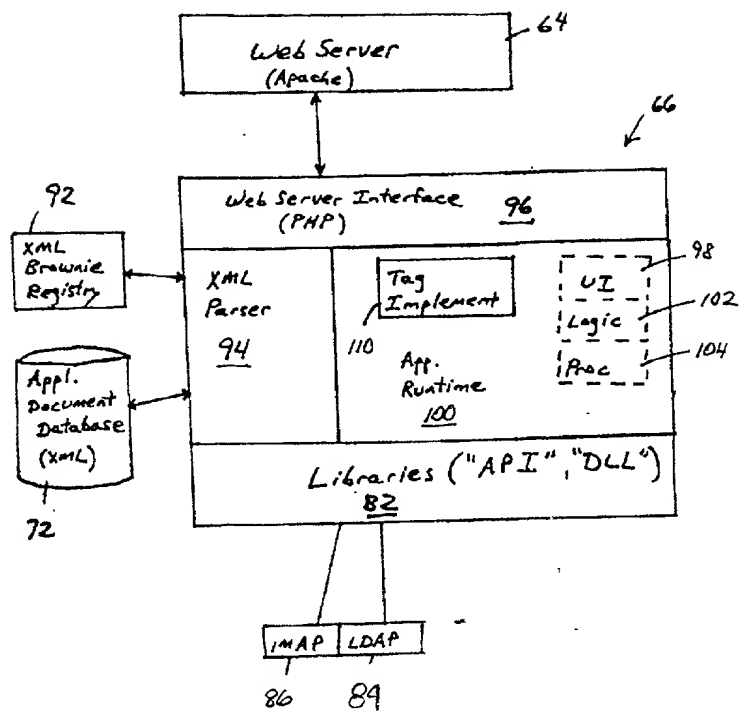 64
Web Server
(Apache)
66
92
Web Server Interface
(PHP) 96
XML
Brownie
Registry
XML
Parser
94
Tag
Implement
110
UI
98
Logic
102
Proc
104
App.
Runtime
100
Appl.
Document
Database
(XML)
72
Libraries ("API","DLL")
82
IMAP
LDAP
86
84